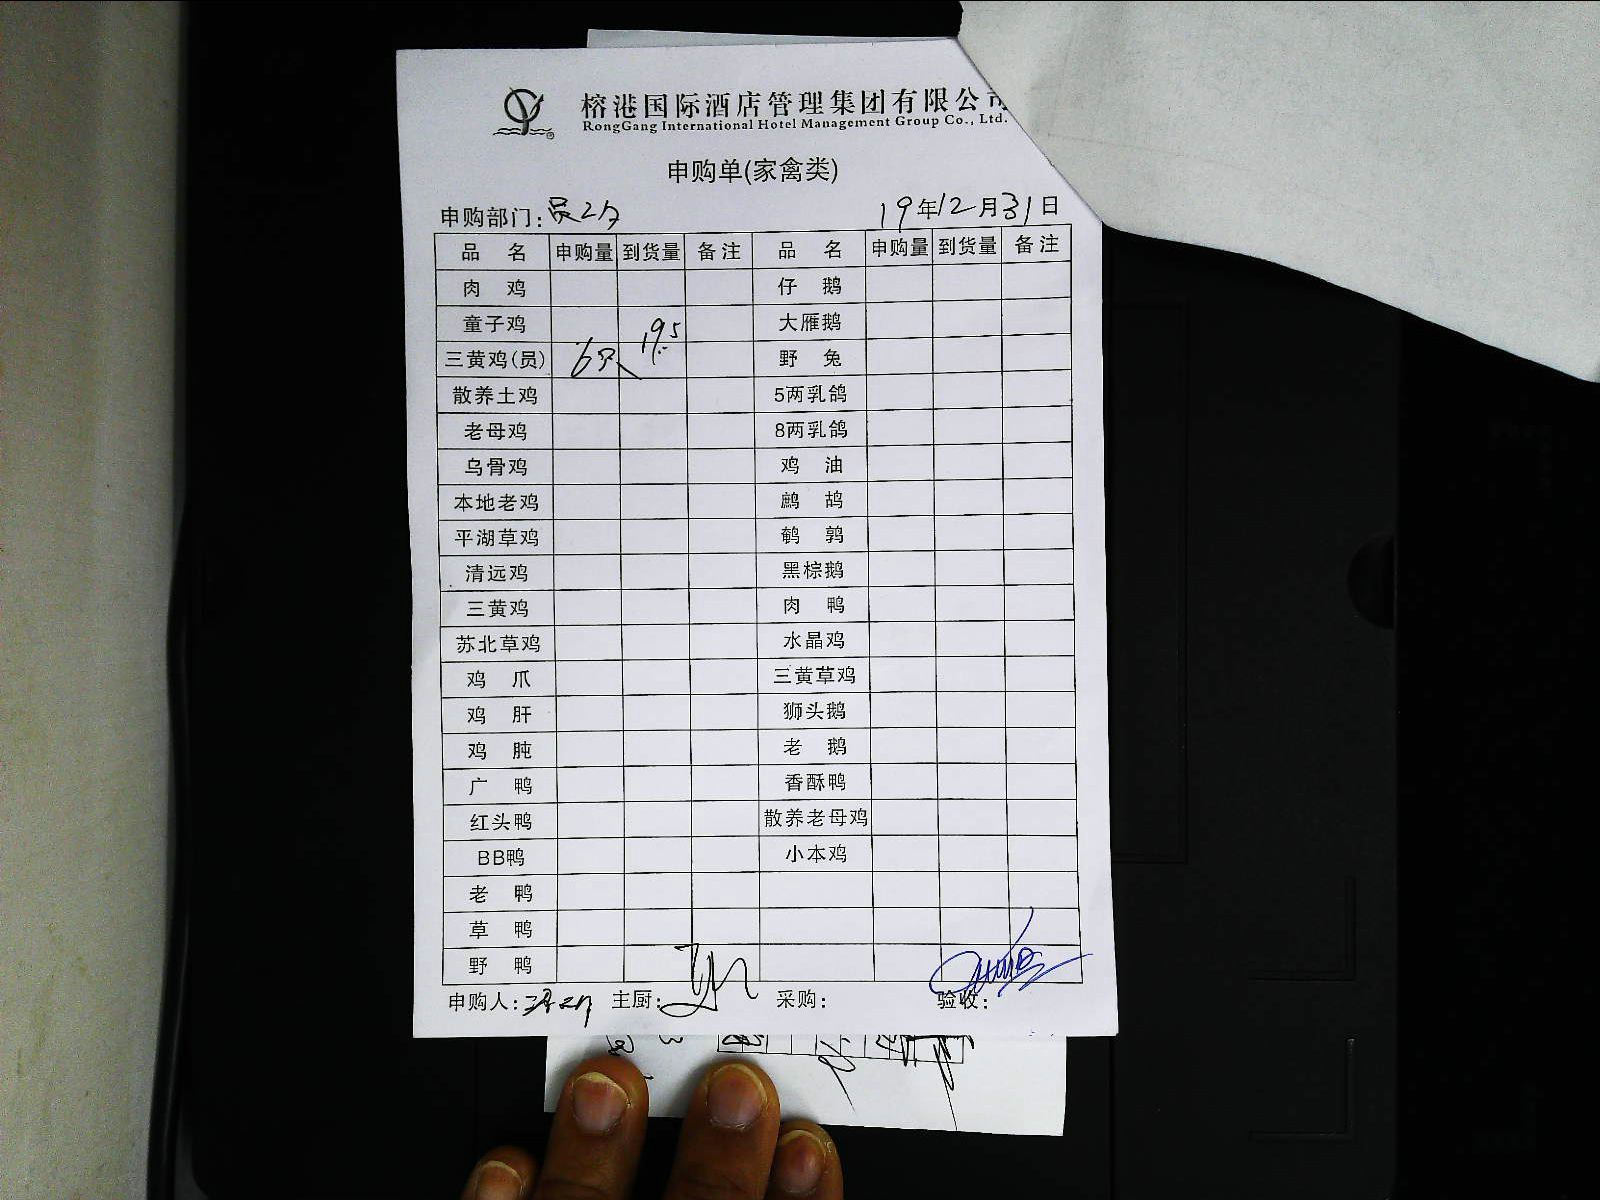 榕港国际酒店管理集团有限公司
RongGang International Hotel Management Group Co., Ltd.
申购单(家禽类)
申购部门: 19年12月31日
品 名 申购量 到货量 备注 品 名 申购量 到货量 备注
肉 鸡 仔 鹅
童子鸡 大雁鹅
三黄鸡(员) 6只 19.5 野 兔
散养土鸡 5两乳鸽
老母鸡 8两乳鸽
乌骨鸡 鸡 油
本地老鸡 鹧 鸪
平湖草鸡 鹌 鹑
清远鸡 黑棕鹅
三黄鸡 肉 鸭
苏北草鸡 水晶鸡
鸡 爪 三黄草鸡
鸡 肝 狮头鹅
鸡 肫 老 鹅
广 鸭 香酥鸭
红头鸭 散养老母鸡
BB鸭 小本鸡
老 鸭
草 鸭
野 鸭
申购人: 主厨: 采购: 验收: